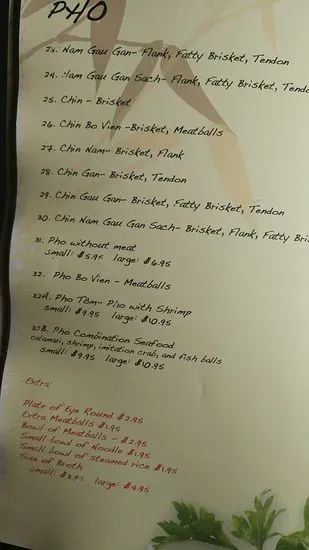 PHO
23. Nam Gau Gan- Flank, Fatty Brisket, Tendon
24. Nam Gau Gan Sach- Flank, Fatty Brisket, Tend
25. Chin - Brisket
26. Chin Bo Vien -Brisket, Meatballs
27. Chin Nam- Brisket, Flank
28. Chin Gan- Brisket, Tendon
29. Chin Gau Gan- Brisket, Fatty Brisket, Tendon
30. Chin Nam Gau Gan Sach- Brisket, Flank, Fatty Bri
31. Pho without meat
small: $5.95 large: $6.95
32. Pho Bo Vien - Meatballs
32A. Pho Tom- Pho with Shrimp
small: $9.95 large: $10.95
32B. Pho Combination Seafood
calamari, shrimp, imitation crab, and fish balls
small: $9.95 large: $10.95
Extra!
Plate of Eye Round $2.95
Extra Meatballs $1.95
Bowl of Meatballs - $2.95
Small bowl of Noodle $1.95
Small bowl of steamed rice $1.95
Side of Broth
small: $3.95 large: $4.95